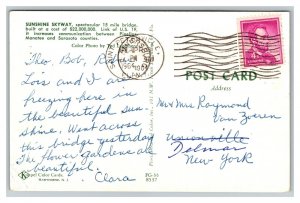 SUNSHINE SKYWAY, spectacular 15 mile bridge,
built at a cost of $22,000,000. Link of U.S. 19,
it increases communication between
Manatee and Sarasota counties.
Color Photo by
POST CARD
Address
Theo, Bob,
Lois and I are
freezing here in
the beautiful sun-
shine. Went across
this bridge yesterday
The flower gardens are
beautiful.
Clara
Mr + Mrs Raymond
Van Zoeren
Unionville
Delmar
New York
Koppel Color Cards
HAWTHORNE, N. J.
FG-56
8037